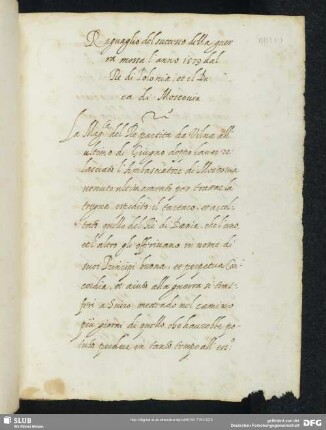 Raguaglio del successo della guer
ra mossa l'anno 1579 dal
Re di Polonia, et el Du
ca di Moscovia
La Mag.tà del Re partita da Vilna all'
ultimo di Giugno doppo haver re
lasciato l'Ambasciatore di Moscovia
venuto ultimamente per trattar la
tregua, espedito il et ascol
tato quello del Rè di Dania, che l'uno,
et l'altro gli offerivano in nome di
suoi Principi buona, et perpetua Con
cordia, et aiuto alla guerra si tras
ferì a Suira, mettendo nel camino
più giorni di quello, che havrebbe po
tuto perdere in tanto tempo all'es.o
SLUB
Wir führen Wissen.
gefördert von der
Deutschen Forschungsgemeinschaft
DFG